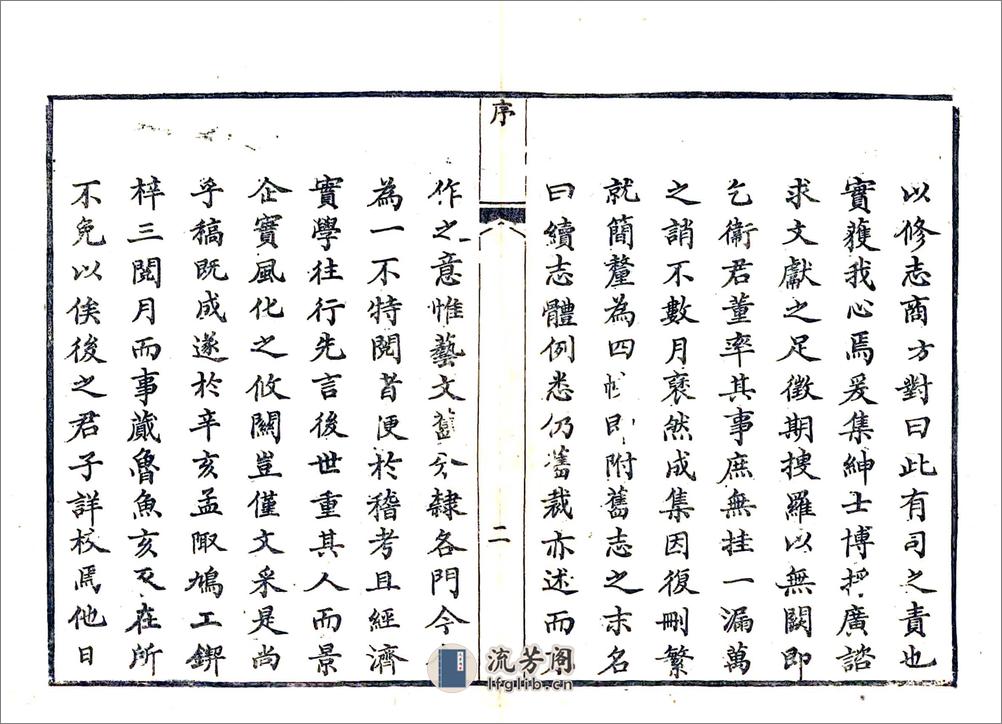 以修志商方對曰此有司之責也
實獲我心焉爰集紳士博採廣諮
求文獻之足徵期搜羅以無闕即
乞衛君董率其事庶無挂一漏萬
之誚不數月裒然成集因復刪繁
就簡釐為四即附舊志之末名
曰續志體例悉仍舊裁亦述而不
序
二
作之意惟藝文舊分隸各門今
為一不特閱者便於稽考且經濟
實學往行先言後世重其人而景
企實風化之攸關豈僅文采是尚
乎稿既成遂於辛亥孟陬鳩工鍥
梓三閱月而事蕆魯魚亥豕在所
不免以俟後之君子詳校焉他日
流芳阁
lfglib.cn